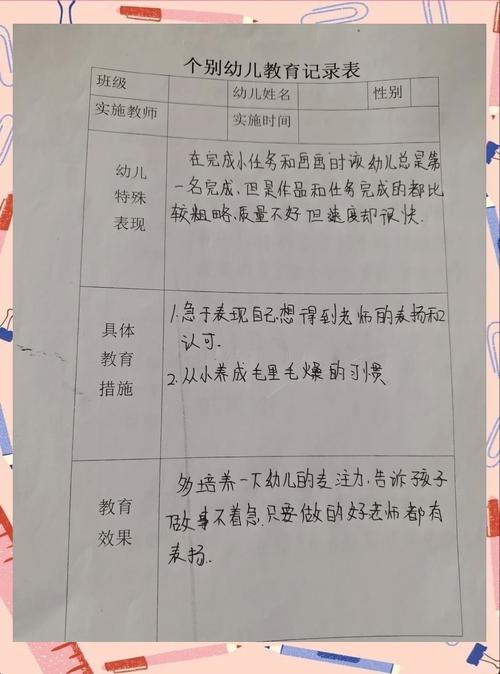 个别幼儿教育记录表
班级 幼儿姓名 性别
实施教师 实施时间
幼儿
特殊
表现
在完成小任务和画画时该幼儿总是第
一名完成,但是作品和任务完成的都比
较粗略、质量不好但速度却很快.
具体
教育
措施
1.急于表现自己想得到老师的表扬和
认可.
2.从小养成毛里毛燥的习惯
教育
效果
多培养一下幼儿的专注力,告诉孩子
做事不着急,只要做的好老师都有
表扬.